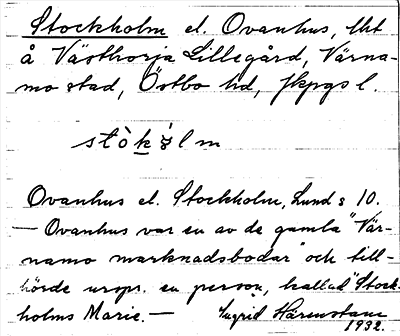 Stockholm el. Ovanhus, lht
å Västhorja Lillegård, Värna-
mo stad, Östbo hd, Jkpgs l.
stòkɔ́lm
Ovanhus el. Stockholm, Lund s 10.
— Ovanhus var en av de gamla "Vär-
namo marknadsbodar" och till-
hörde urspr. en person, kallad "Stock-
holms Marie. — Ingrid
1932.